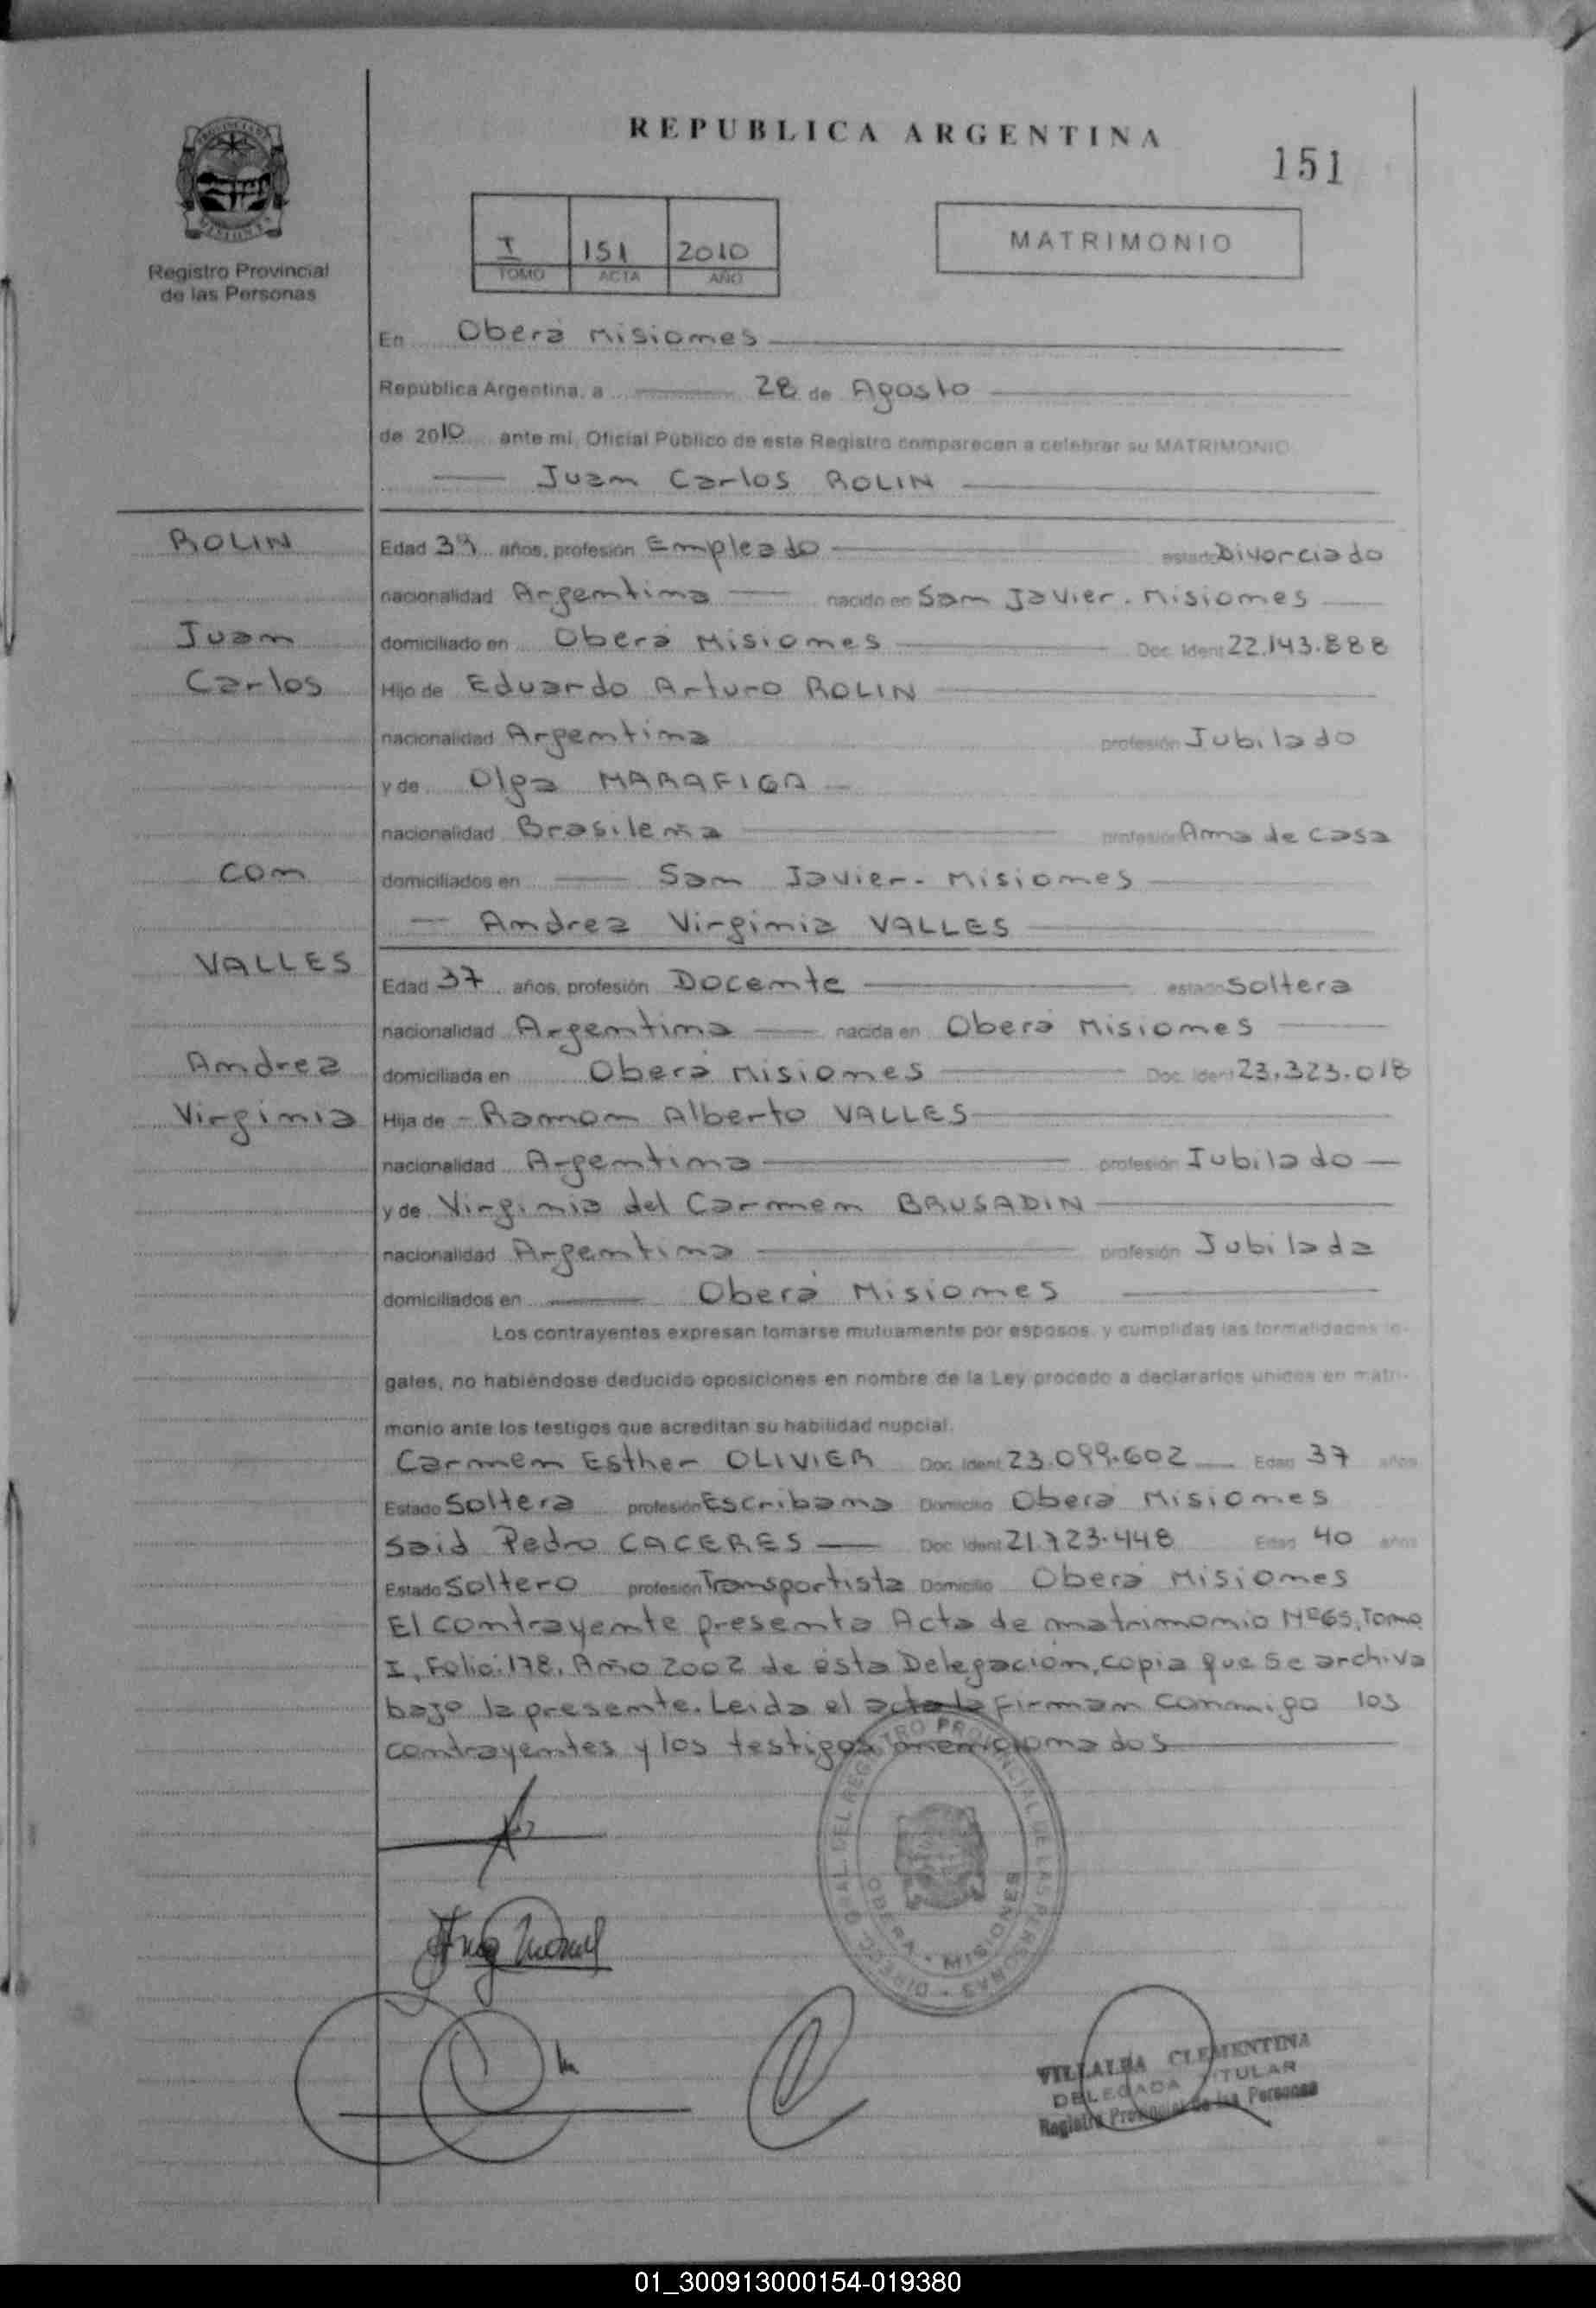 REPUBLICA ARGENTINA
151
I 151 2010
TOMO ACTA AÑO
MATRIMONIO
Registro Provincial
de las Personas
En Oberá Misiones
República Argentina, a 28 de Agosto
de 2010 ante mí, Oficial Público de este Registro comparecen a celebrar su MATRIMONIO
Juan Carlos ROLIN
ROLIN
Juan
Carlos
Edad 39 años, profesión Empleado estado Divorciado
nacionalidad Argentina nacido en San Javier. Misiones
domiciliado en Oberá Misiones Doc. Ident 22.143.888
Hijo de Eduardo Arturo ROLIN
nacionalidad Argentina profesión Jubilado
y de Olga MARAFIGA
nacionalidad Brasileña profesión Ama de Casa
con
domiciliados en San Javier - Misiones
Andrea Virginia VALLES
VALLES
Andrea
Virginia
Edad 37 años, profesión Docente estado Soltera
nacionalidad Argentina nacida en Oberá Misiones
domiciliada en Oberá Misiones Doc. Ident 23.323.018
Hija de - Ramon Alberto VALLES
nacionalidad Argentina profesión Jubilado
y de Virginia del Carmen BRUSADIN
nacionalidad Argentina profesión Jubilada
domiciliados en Oberá Misiones
Los contrayentes expresan tomarse mutuamente por esposos, y cumplidas las formalidades le-
gales, no habiéndose deducido oposiciones en nombre de la Ley procedo a declararlos unidos en matri-
monio ante los testigos que acreditan su habilidad nupcial.
Carmen Esther OLIVIER Doc. Ident 23.099.602 Edad 37 años
Estado Soltera profesión Escribana Domicilio Oberá Misiones
Said Pedro CACERES Doc. Ident 21.723.448 Edad 40 años
Estado Soltero profesión Transportista Domicilio Oberá Misiones
El contrayente presenta Acta de matrimonio Nº65, Tomo
I, Folio: 178, Año 2002 de ésta Delegación, copia que se archiva
bajo la presente. Leida el acta la firman conmigo los
contrayentes y los testigos mencionados
DIRECC. GRAL. DEL REGISTRO PROVINCIAL DE LAS PERSONAS
OBERA - MISIONES
VILLALBA CLEMENTINA
DELEGADA TITULAR
Registro Provincial de las Personas
01_300913000154-019380